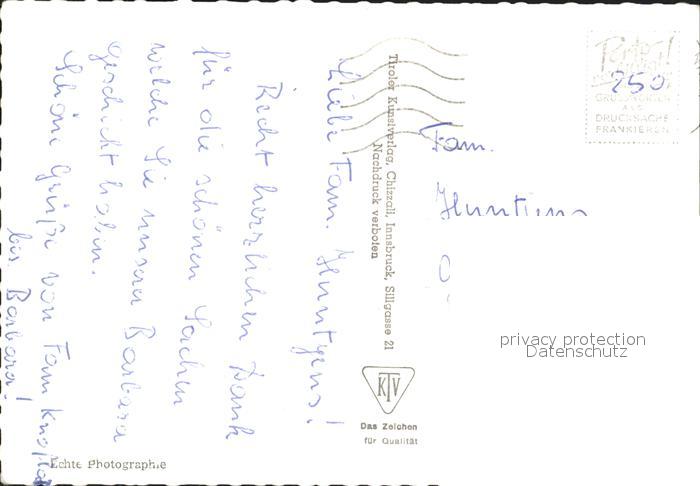 Liebe Fam. Huntgens!
Recht herzlichen Dank
für die schönen Sachen
welche Sie unserer Barbara
geschickt haben.
Schöne Grüße von Fam
bes. Barbara!
Tiroler Kunstverlag, Chizzali, Innsbruck, Sillgasse 21
Nachdruck verboten
KTV
Das Zeichen
für Qualität
Echte Photographie
Porto!
250
GRUSSWORTEN
ALS
DRUCKSACHE
FRANKIEREN
Fam.
privacy protection
Datenschutz